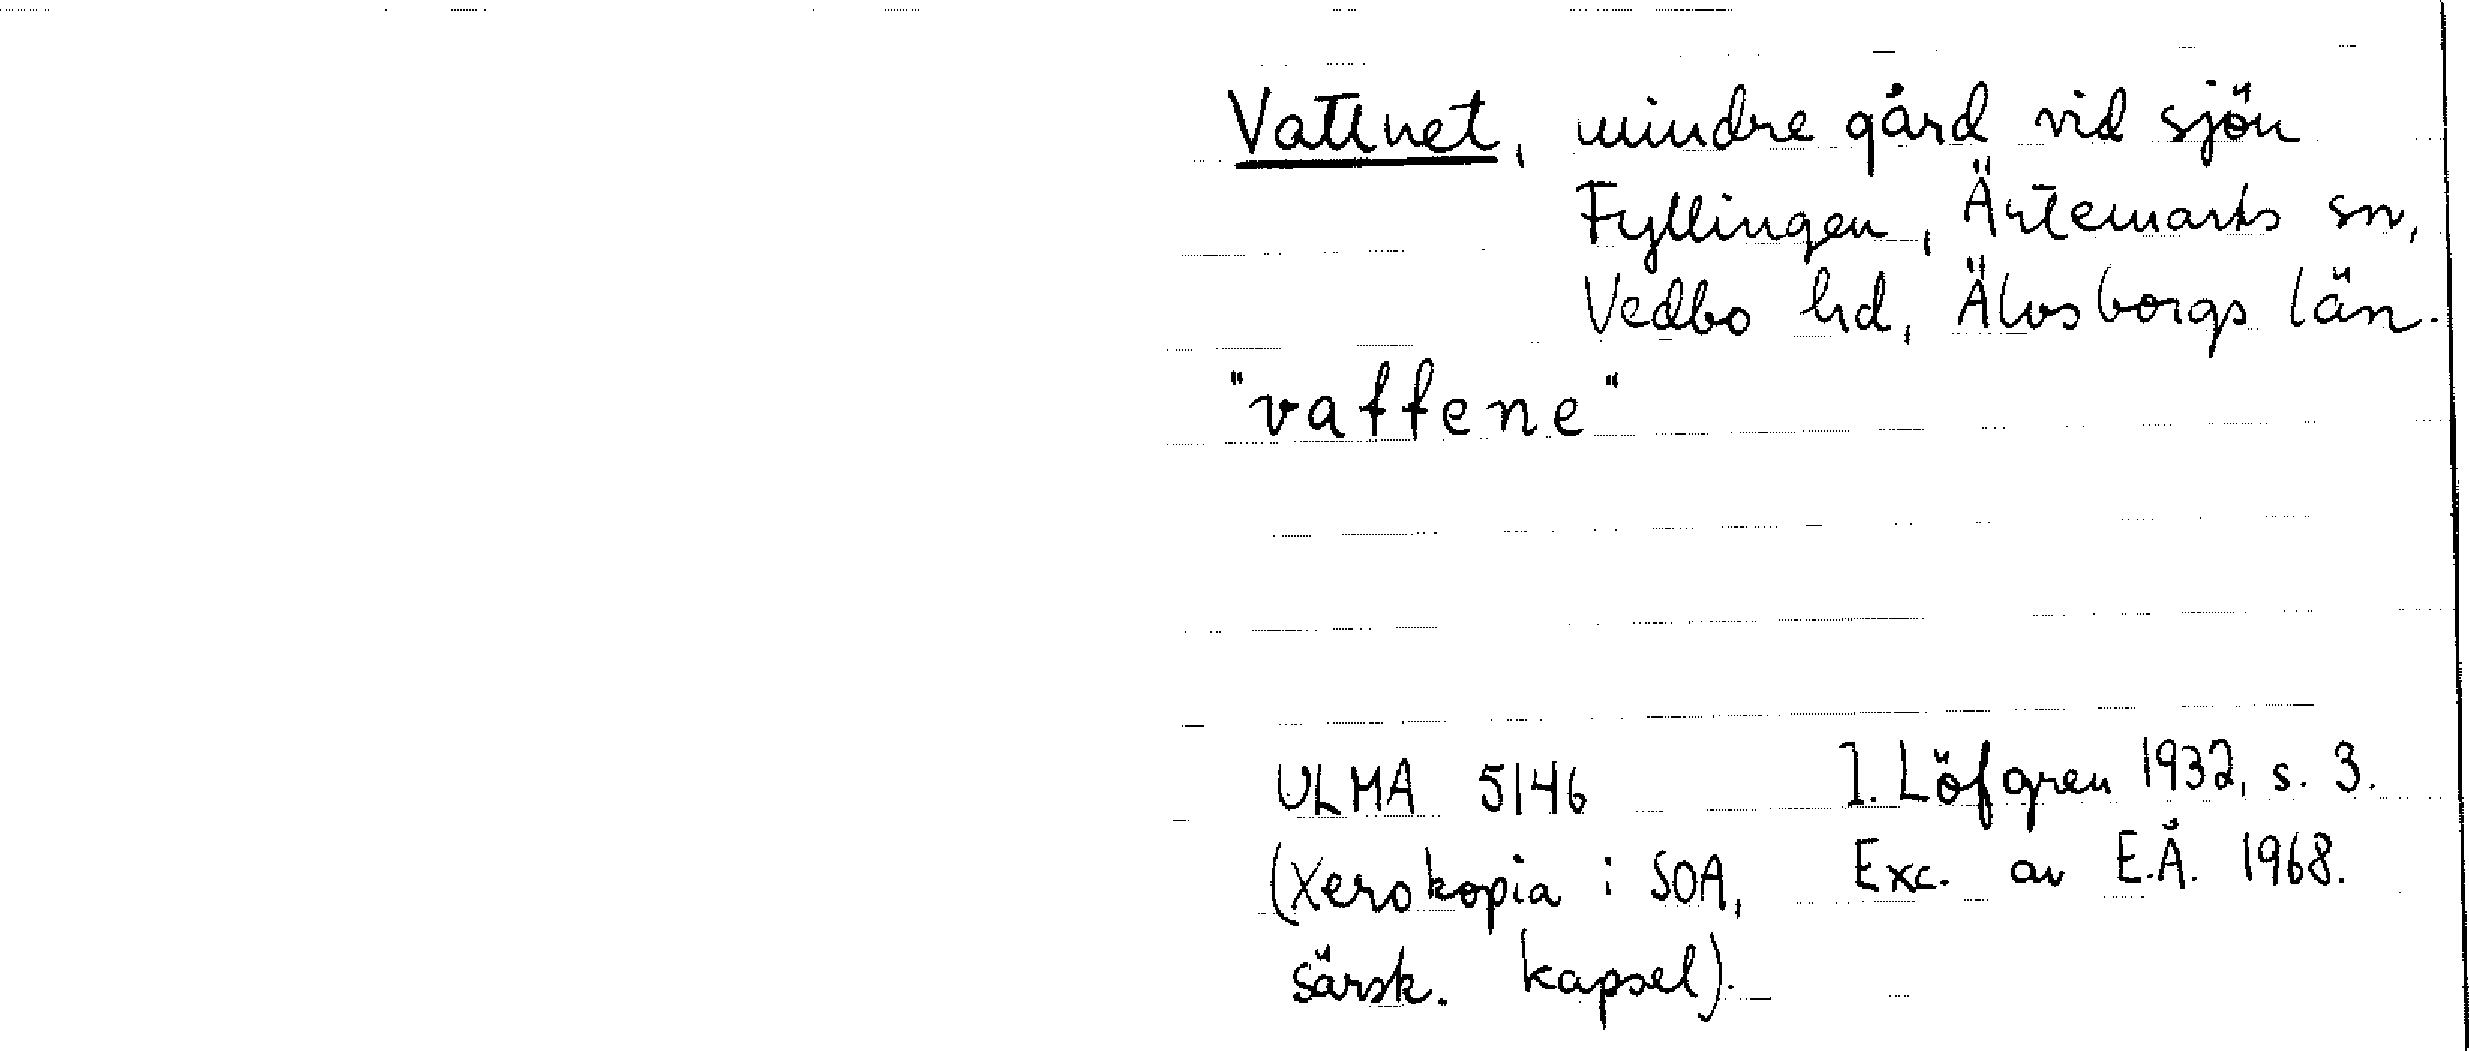 Vattnet, mindre gård vid sjön
Fyllingen, Ärtemarks sn,
Vedbo hd, Älvsborgs län.
"vattene"
ULMA 5146 I. Löfgren 1932, s. 3.
(Xerokopia i SOA, Exc. av E.Ä. 1968.
särsk. kapsel).